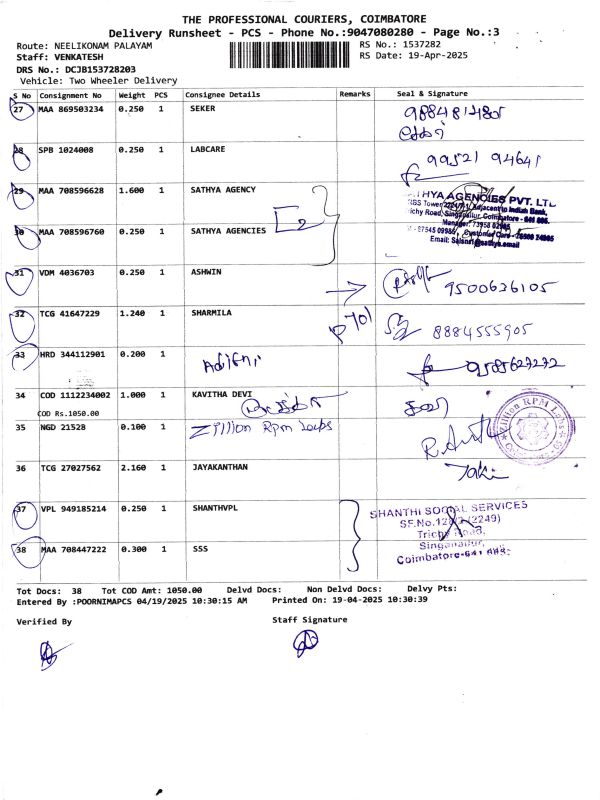 THE PROFESSIONAL COURIERS, COIMBATORE
Delivery Runsheet - PCS - Phone No.:9047080280 - Page No.:3
Route: NEELIKONAM PALAYAM RS No.: 1537282
Staff: VENKATESH RS Date: 19-Apr-2025
DRS No.: DCJB153728203
Vehicle: Two Wheeler Delivery
S No Consignment No Weight PCS Consignee Details Remarks Seal & Signature
27 MAA 869503234 0.250 1 SEKER
28 SPB 1024008 0.250 1 LABCARE 99521 94641
29 MAA 708596628 1.600 1 SATHYA AGENCY
SATHYA AGENCIES PVT. LTD
Adjacent to Indian Bank,
Trichy Road, Singanallur, Coimbatore
30 MAA 708596760 0.250 1 SATHYA AGENCIES
31 VDM 4036703 0.250 1 ASHWIN 9500626105
32 TCG 41647229 1.240 1 SHARMILA 8884555905
33 HRD 344112901 0.200 1
34 COD 1112234002 1.000 1 KAVITHA DEVI
COD Rs.1050.00
35 NGD 21528 0.100 1 Zillion Rpm Labs
Zillion RPM Labs
36 TCG 27027562 2.160 1 JAYAKANTHAN
37 VPL 949185214 0.250 1 SHANTHVPL
SHANTHI SOCIAL SERVICES
Trichy Road,
Singanallur,
38 MAA 708447222 0.300 1 SSS
Tot Docs: 38 Tot COD Amt: 1050.00 Delvd Docs: Non Delvd Docs: Delvy Pts:
Entered By :POORNIMAPCS 04/19/2025 10:30:15 AM Printed On: 19-04-2025 10:30:39
Verified By Staff Signature